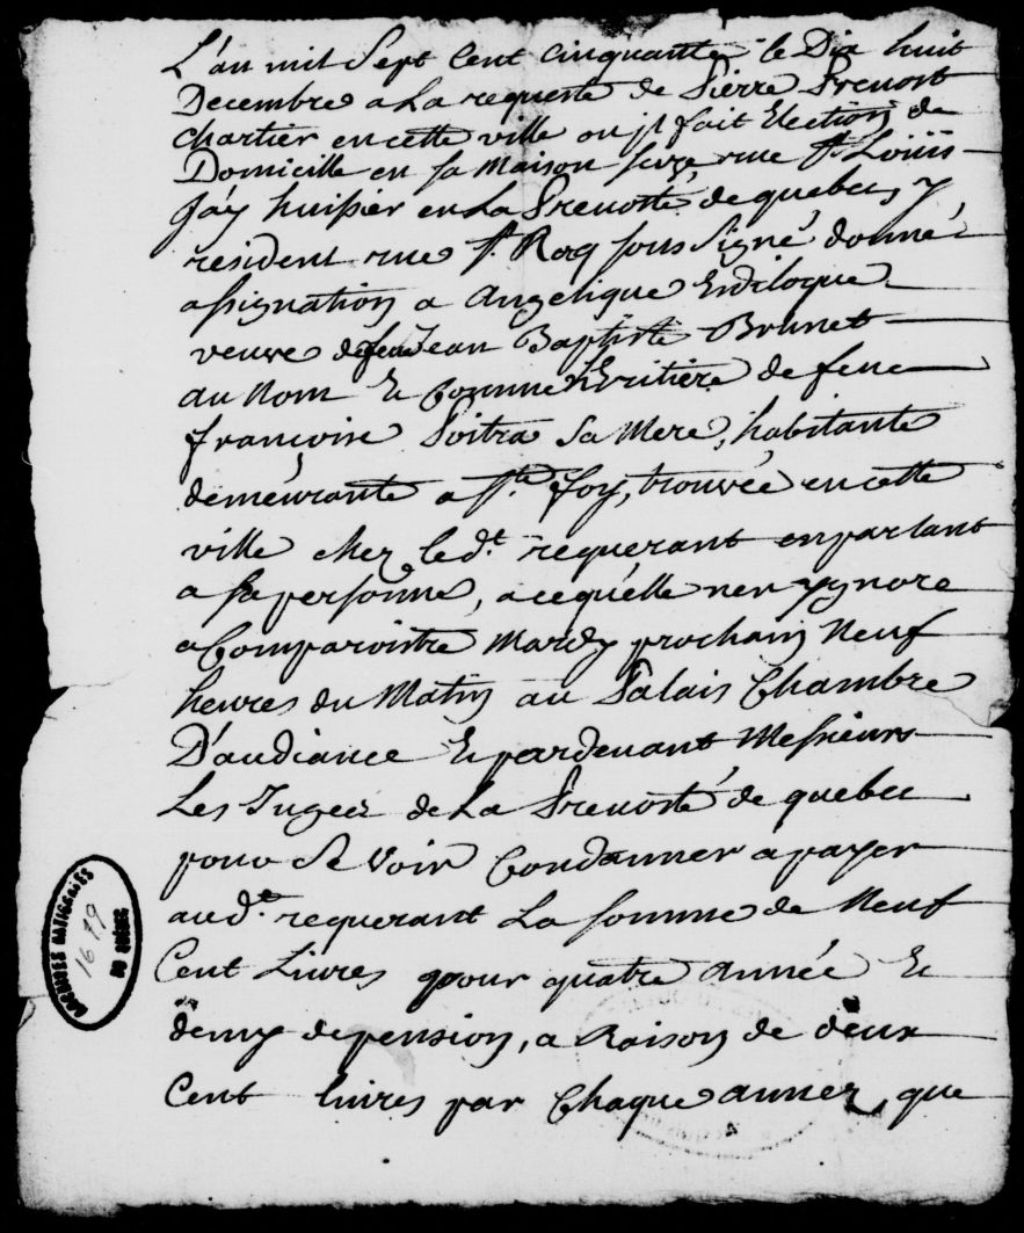 L'an mil Sept Cent Cinquante le Dix huit
Decembre a La requeste de Pierre Prevost
chartier en cette ville ou jl fait Election de
Domicille en sa Maison size rue St. Loüis
Jay huissier en La Prevosté de quebec y
resident rue St. Roq sous Signé donné
assignation a Angelique
veuve de feu Jean Baptiste Brunet
au Nom Et Comme hEritiere de feue
françoise Poitra Sa Mere, habitante
demeurante a Ste. foy, trouvée en cette
ville chez led.t requerant en parlant
a sa personne, a cequélle nen ygnore
a Comparoitre Mardy prochain Neuf
heures du Matin au Palais Chambre
D'audiance Et pardevant Messieurs
Les Juges de La Prevosté de quebec
pour Se Voir Condanner a payer
aud.t requerant La somme de Neuf
Cent Livres pour quatre Année Et
demy de pension, a Raison de deux
Cent livres par Chaque année, que
ARCHIVES JUDICIAIRES
1679
DE QUÉBEC